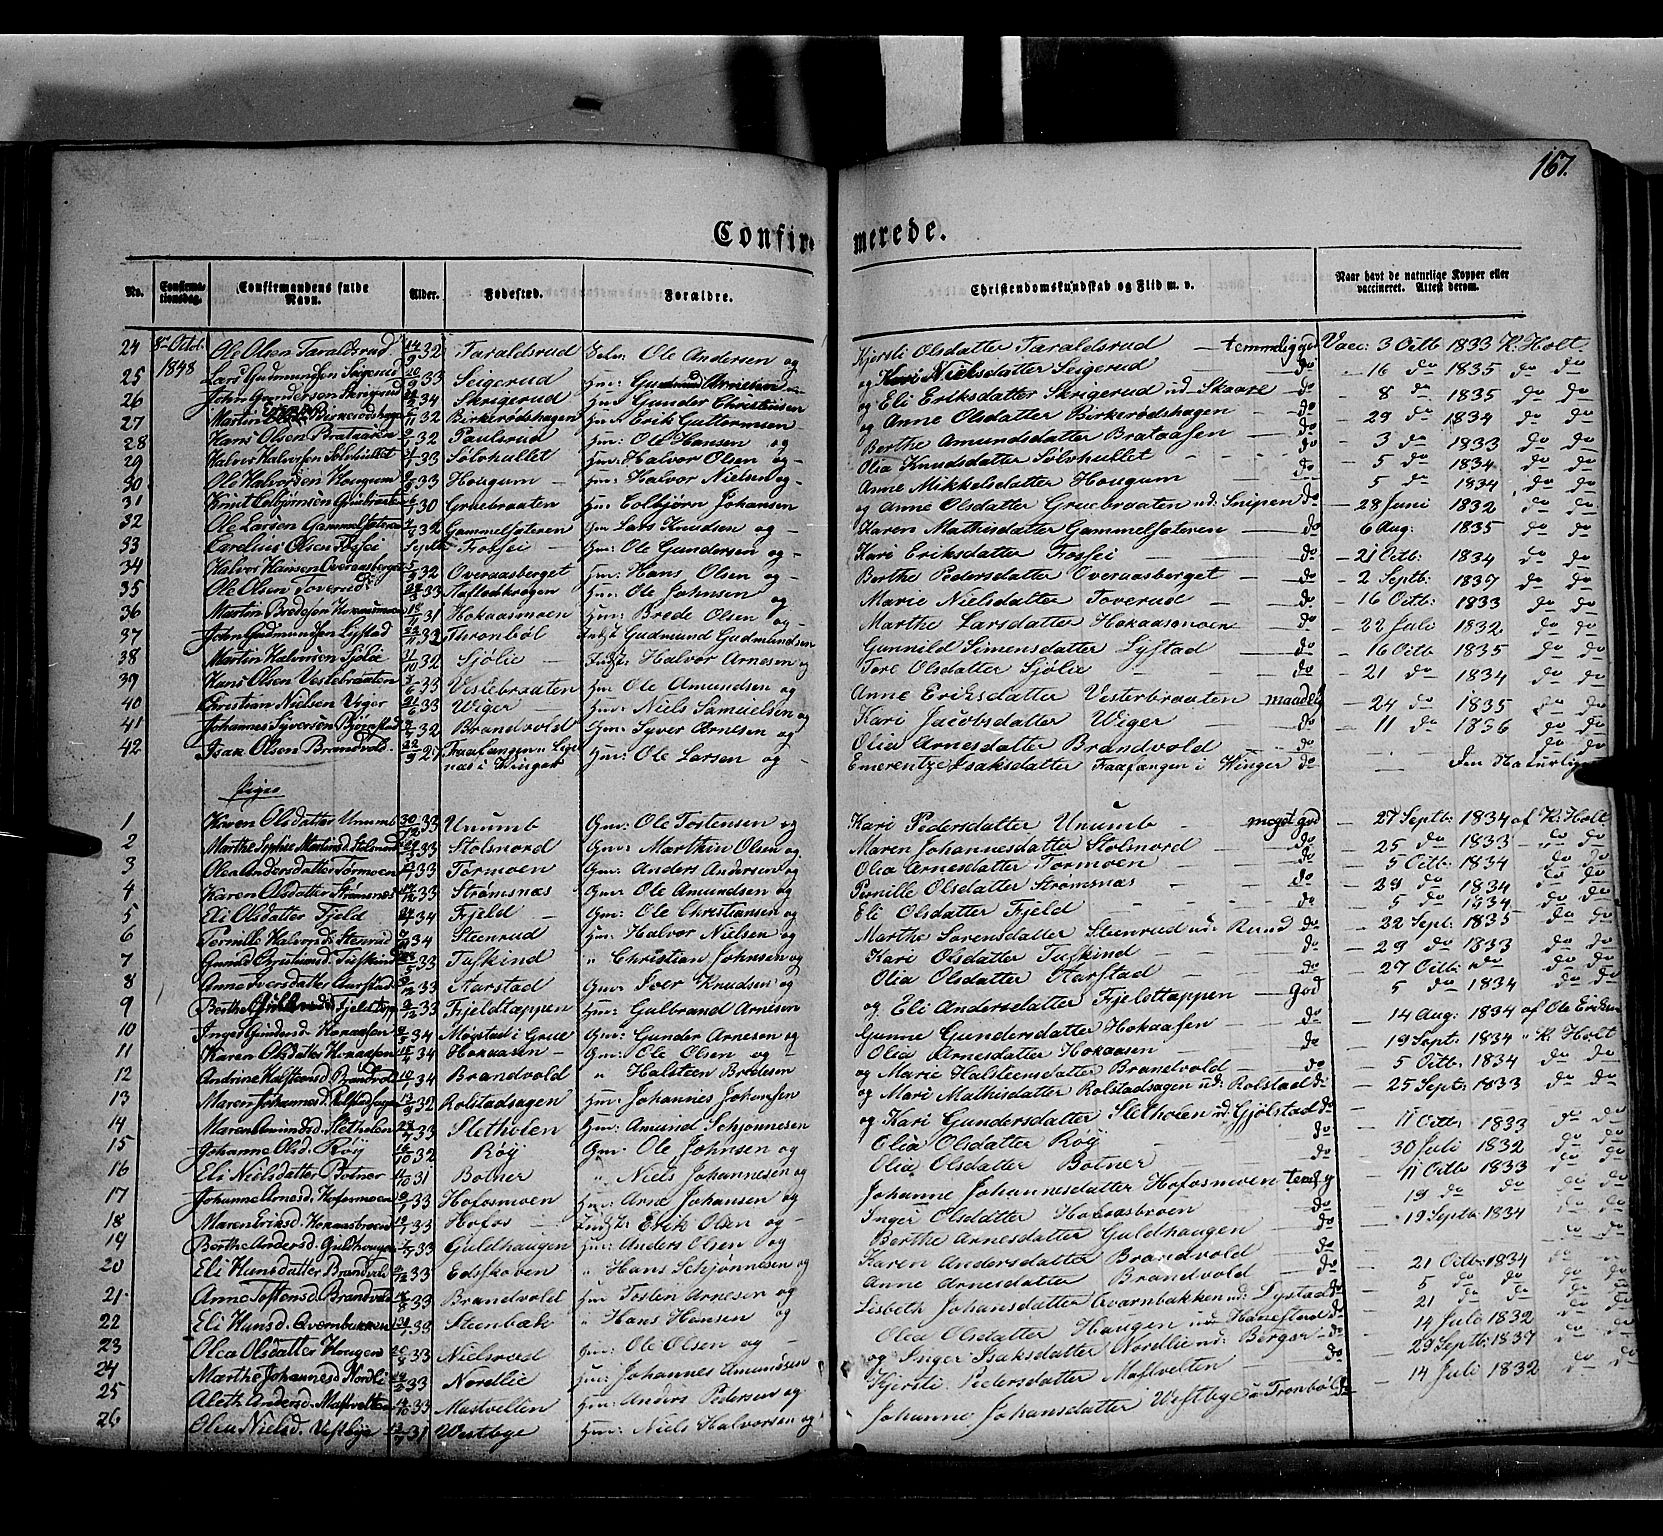 167.
Confirmerede.
No. Confirmationsdag. Confirmandens fulde Navn. Alder. Fødested. Forældre. Christendomskundskab og Flid m. v. Naar havt de naturlige Kopper eller vaccineret. Attest derom.
24 8de Octob. Ole Olsen Taraldsrud 14/9 32 Taraldsrud Ole Andersen og Kjersti Olsdatter Taraldsrud — temmeligge Vacc: 3 Octb 1833 K: Holt
25 1848 Lars Gudmundsen Seigerud 33 Seigerud Gm: og Kari Nielsdatter Seigerud — do — 16 do 1835 do do
26 John Gundersen Skrigerud 34 Skrigerud Gm: Gunder Christensen og Eli Eriksdatter Skrigerud ud: Skaare — do — 8 do 1835 do do
27 Martin Birkerødshagen 32 Birkerødshagen Erik Guttormsen og Anne Olsdatter Birkerødshagen — do — 29 do 1834 do do
28 Hans Olsen Brataasen 32 Paulsrud Gm: Ole Hansen og Berthe Amundsdatter Brataasen — do — 3 do 1833 do do
29 Halvor Halvorsen Sølvhullet 33 Sølvhullet Gm: Halvor Olsen og Olia Knudsdatter Sølvhullet do — 5 do 1834 do do
30 Ole Halvorsen Hougum 33 Hougum Gm: Halvor Nielsen og Anne Mikkelsdatter Hougum — do — 5 do 1834 do do
31 Knut Colbjørnsen Gruebraaten 30 Gruebraaten Gm: Colbjørn Johansen og Anne Olsdatter Gruebraaten ud: Snipen do — 28 Juni 1832 do do
32 Ole Larsen Gammelsæteren 32 Gammelsæteren Gm Lars Knudsen og Karen Mathisdatter Gammelsæteren — do — 6 Aug: 1835 do do
33 Carelius Olsen Fossei Septbr Fossei Gm: Ole Gundersen og Kari Eriksdatter Fossei — do — 21 Octb: 1834 do do
34 Halvor Hansen Overaasberget 32 Overaasberget Gm: Hans Olsen og Berthe Pedersdatter Overaasberget — do — 2 Septb: 1837 do do
35 Ole Olsen Toverud 33 Gm: Ole Johnsen og Marie Nielsdatter Toverud — do — 16 Octb: 1833 do do
36 Martin Bredesen Hokaasmoen 31 Hokaasmoen Gm: Brede Olsen og Marthe Larsdatter Hokaasmoen — do — 22 Juli 1832 do do
37 John Gudmundsen Lystad 33 Thronbøl Gudmund Gudmundsen Gunnild Simensdatter Lystad — do — 16 Octb 1835 do do
38 Martin Halvorsen Sjølie 32 Sjølie Halvor Arnesen og Tore Olsdatter Sjølie — do — 21 do 1834 do do
39 Hans Olsen Vestebraaten 33 Vestebraaten Gm: Ole Amundsen og Anne Eriksdatter Vesterbraaten — maadelig — 24 do 1835 do do
40 Christian Nielsen Viger 33 Wiger Gm: Niels Samuelsen og Kari Jacobsdatter Wiger — do — 11 do 1836 do do
41 Johannes Syversen Bjørnstad 32 Brandvold Gm: Syver Arnesen og Olia Arnesdatter Brandvold — do do do
42 Isak Olsen Brandvol 27 Faafangen i Winger Gm: Ole Larsen og Emerentze Isaksdatter Faafangen i Winger do den Naturlige
Piger
1 Karen Olsdatter Unumb 30/12 33 Unumb Gm: Ole Tostensen og Kari Pedersdatter Unumb — meget god — 27 Septb: 1834 af K: Holt
2 Marthe Sophie Martinsd. Stolsnord 33 Stolsnord Gm: Marthin Olsen og Maren Johannesdatter Stolsnord — do — 25 do 1833 do do
3 Olea Andersdatter Tørmoen 33 Tørmoen Gm: Anders Andersen og Olia Arnesdatter Tørmoen — do — 5 Octb: 1834 do do
4 Karen Olsdatter Strømsnæs 33 Strømsnæs Gm: Ole Amundsen og Pernille Olsdatter Strømsnæs — do — 29 do 1834 do do
5 Eli Olsdatter Fjeld 34 Fjeld Gm: Ole Christiansen og Eli Olsdatter Fjeld — do — 5 do 1934 do do
6 Pernille Halvorsd. Stenrud 34 Steenrud Gm: Halvor Nielsen og Marthe Sørensdatter Steenrud ud: Rund do — 22 Sept: 1835 do do
7 Gunild Christiansd. Tuskind 33 Tuskind " Christian Johnsen og Kari Olsdatter Tuskind — do — 29 do 1833 do do
8 Anne Iversdatter Aarstad 33 Aarstad Gm: Iver Knudsen og Olia Olsdatter Aarstad — do — 27 Octb: do do do
9 Berthe Gulbrandsd. Fjeldtap 33 Fjeldtappen Gm: Gulbrand Arnesen og Eli Andersdatter Fjeldtappen — God — 5 do 1834 do do
10 Inger Gundersd. Hokaasen 34 Mogstad i Grue Gm: Gunder Arnesen og Gunne Gundersdatter Hokaasen — do — 14 Aug: 1834 af Ole Eriksen
11 Karen Olsdatter Hokaasen 34 Hokaasen Gm: Ole Olsen og Olia Arnesdatter Hokaasen — do — 19 Sept: 1834 " K: Holt
12 Andrine Halsteensd. Brandvold 34 Brandvold " Halsteen Bredesen og Marie Halsteensdatter Brandvold — do — 5 Octb: 1834 do do
13 Maren Johannesd. Rolstadsagen 32 Rolstadsagen Gm: Johannes Johansen og Mari Mathisdatter Rolstadsagen ud: Rolstad do — 25 Sept: 1833 do do
14 Maren Amundsd. Sletholen 33 Sletholen Gm: Amund Schjønnesen og Kari Gundersdatter Sletholen ud: Gjølstad do — 11 Octb: 1833 do do
15 Johanne Olsd. Røy 32 Røy Gm: Ole Johnsen og Olia Olsdatter Røy — do — 30 Juli 1832 do do
16 Eli Nielsdatter Botner 31 Botner " Niels Johannesen og Olia Olsdatter Botner — do 11 Octb 1833 do do
17 Johanne Arnesd. Hofosmoen 33 Hofosmoen Gm: Arne Johansen og Johanne Johannesdatter Hofosmoen — 19 do do do do
18 Maren Eriksd. Hokaasbroen 33 Hofos Erik Olsen og Inger Olsdatter Hokaasbroen — do 19 Septb: 1834 do do
19 Berthe Andersd. Guldhaugen 33 Guldhaugen Gm: Anders Olsen og Berthe Arnesdatter Guldhaugen do
20 Eli Hansdatter Brandvold 33 Edskoven " Hans Schjønnesen og Karen Andersdatter Brandvold — do 21 Octb: 1834 do do
21 Anne Tostensd. Brandvold 33 Brandvold Gm Tosten Arnesen og Anne Arnesdatter Brandvold — do — 5 do do do do
22 Eli Hansd. Qværnbakken 33 Steenbæk " Hans Hansen og Lisbeth Johansdatter Qvarnbakken ud: Lystad do — 21 do do do
23 Olea Olsdatter Hougen 33 Nielsrud Gm: Ole Olsen og Olia Olsdatter Haugen do — 14 Juli 1832 do do
24 Marthe Johannesd Nordli 33 Nordlie Gm: Johannes Amundsen og Inger Isaksdatter Nordlie ud: Berger do — 29 Septb: 1837 do do
25 Aleth Andersd. Mastvelten 33 Mastvelten Gm: Anders Pedersen og Kjersti Pedersdatter Mastvelten — do — 14 Juli 1832 do do
26 Olea Nielsd. Vestbye 31 Westbye Gm: Niels Halvorsen og Johanne Johansdatter Westbye u: Tronbøl do